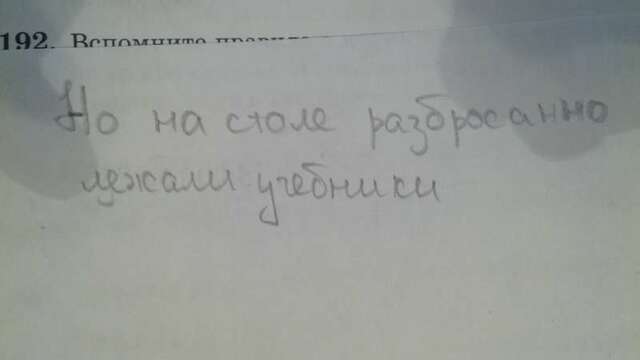 192. Вспомните
Но на столе разбросанно
лежали учебники